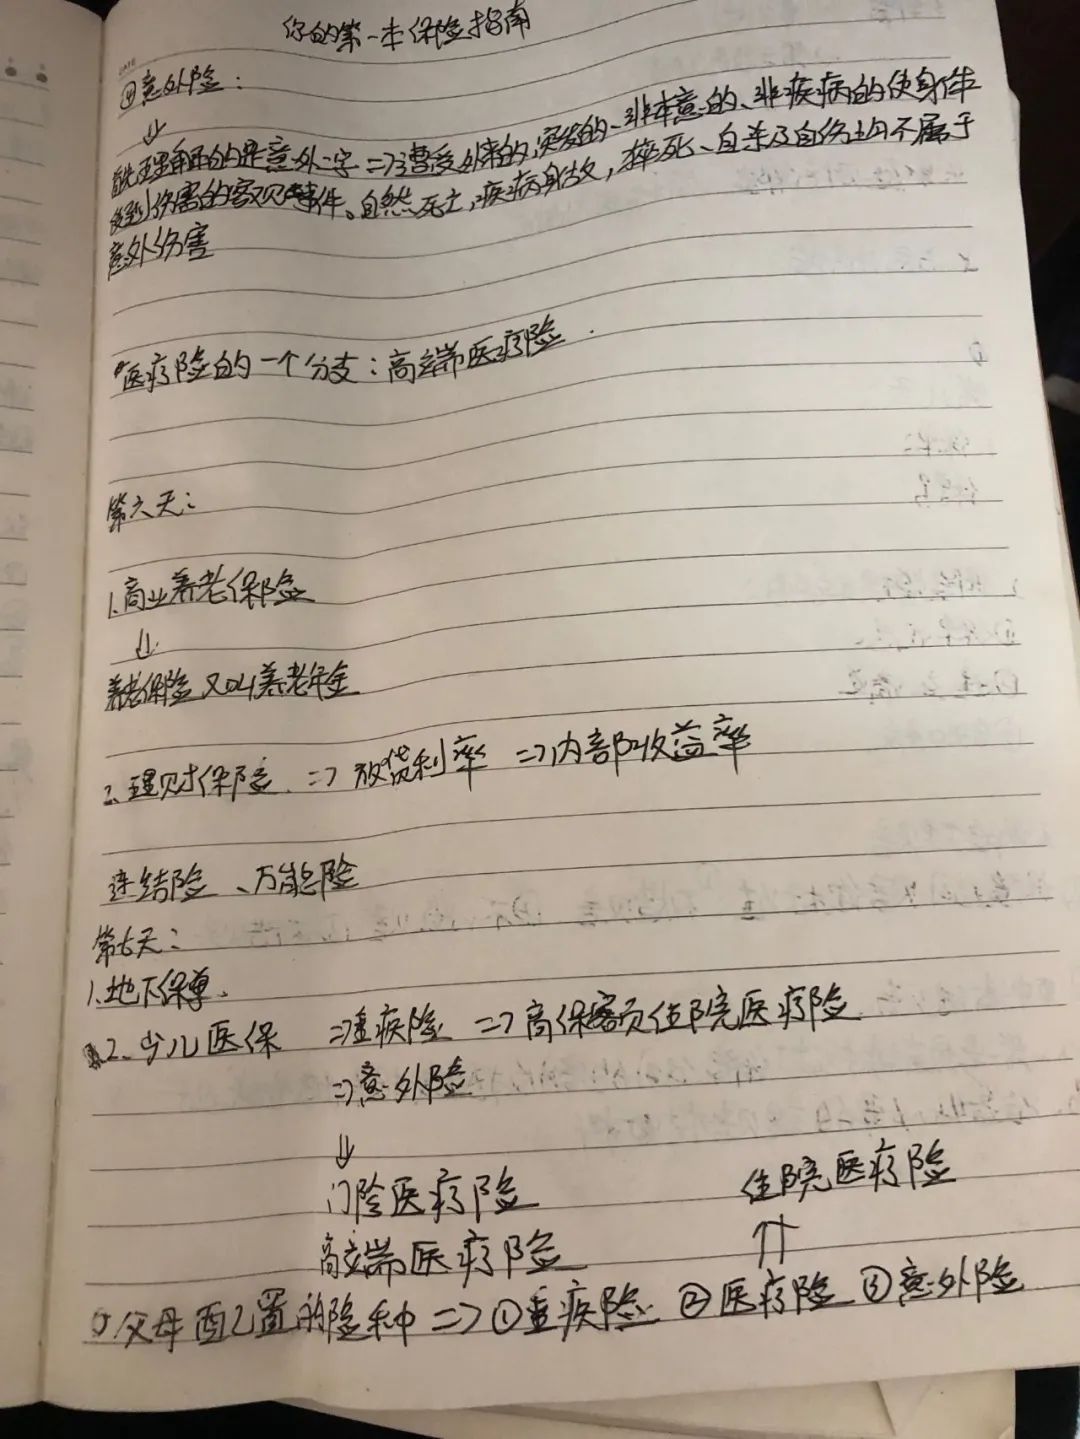 你的第一本保险指南
④意外险：
↓
首先要理解的是意外二字⇒遭受外来的、突发的、非本意的、非疾病的使身体
受到伤害的客观事件。自然死亡，疾病身故，猝死、自杀及自伤均不属于
意外伤害
医疗险的一个分支：高端医疗险.
第六天：
1.商业养老保险
↓
养老保险又叫养老年金
2.理财保险.⇒放贷利率⇒内部收益率
连结险、万能险
第七天：
1.地下保单、
2、少儿医保 ⇒重疾险 ⇒高保额住院医疗险
⇒意外险
↓
门诊医疗险 住院医疗险
高端医疗险 ⇑
父母配置的险种⇒①重疾险 ②医疗险 ③意外险